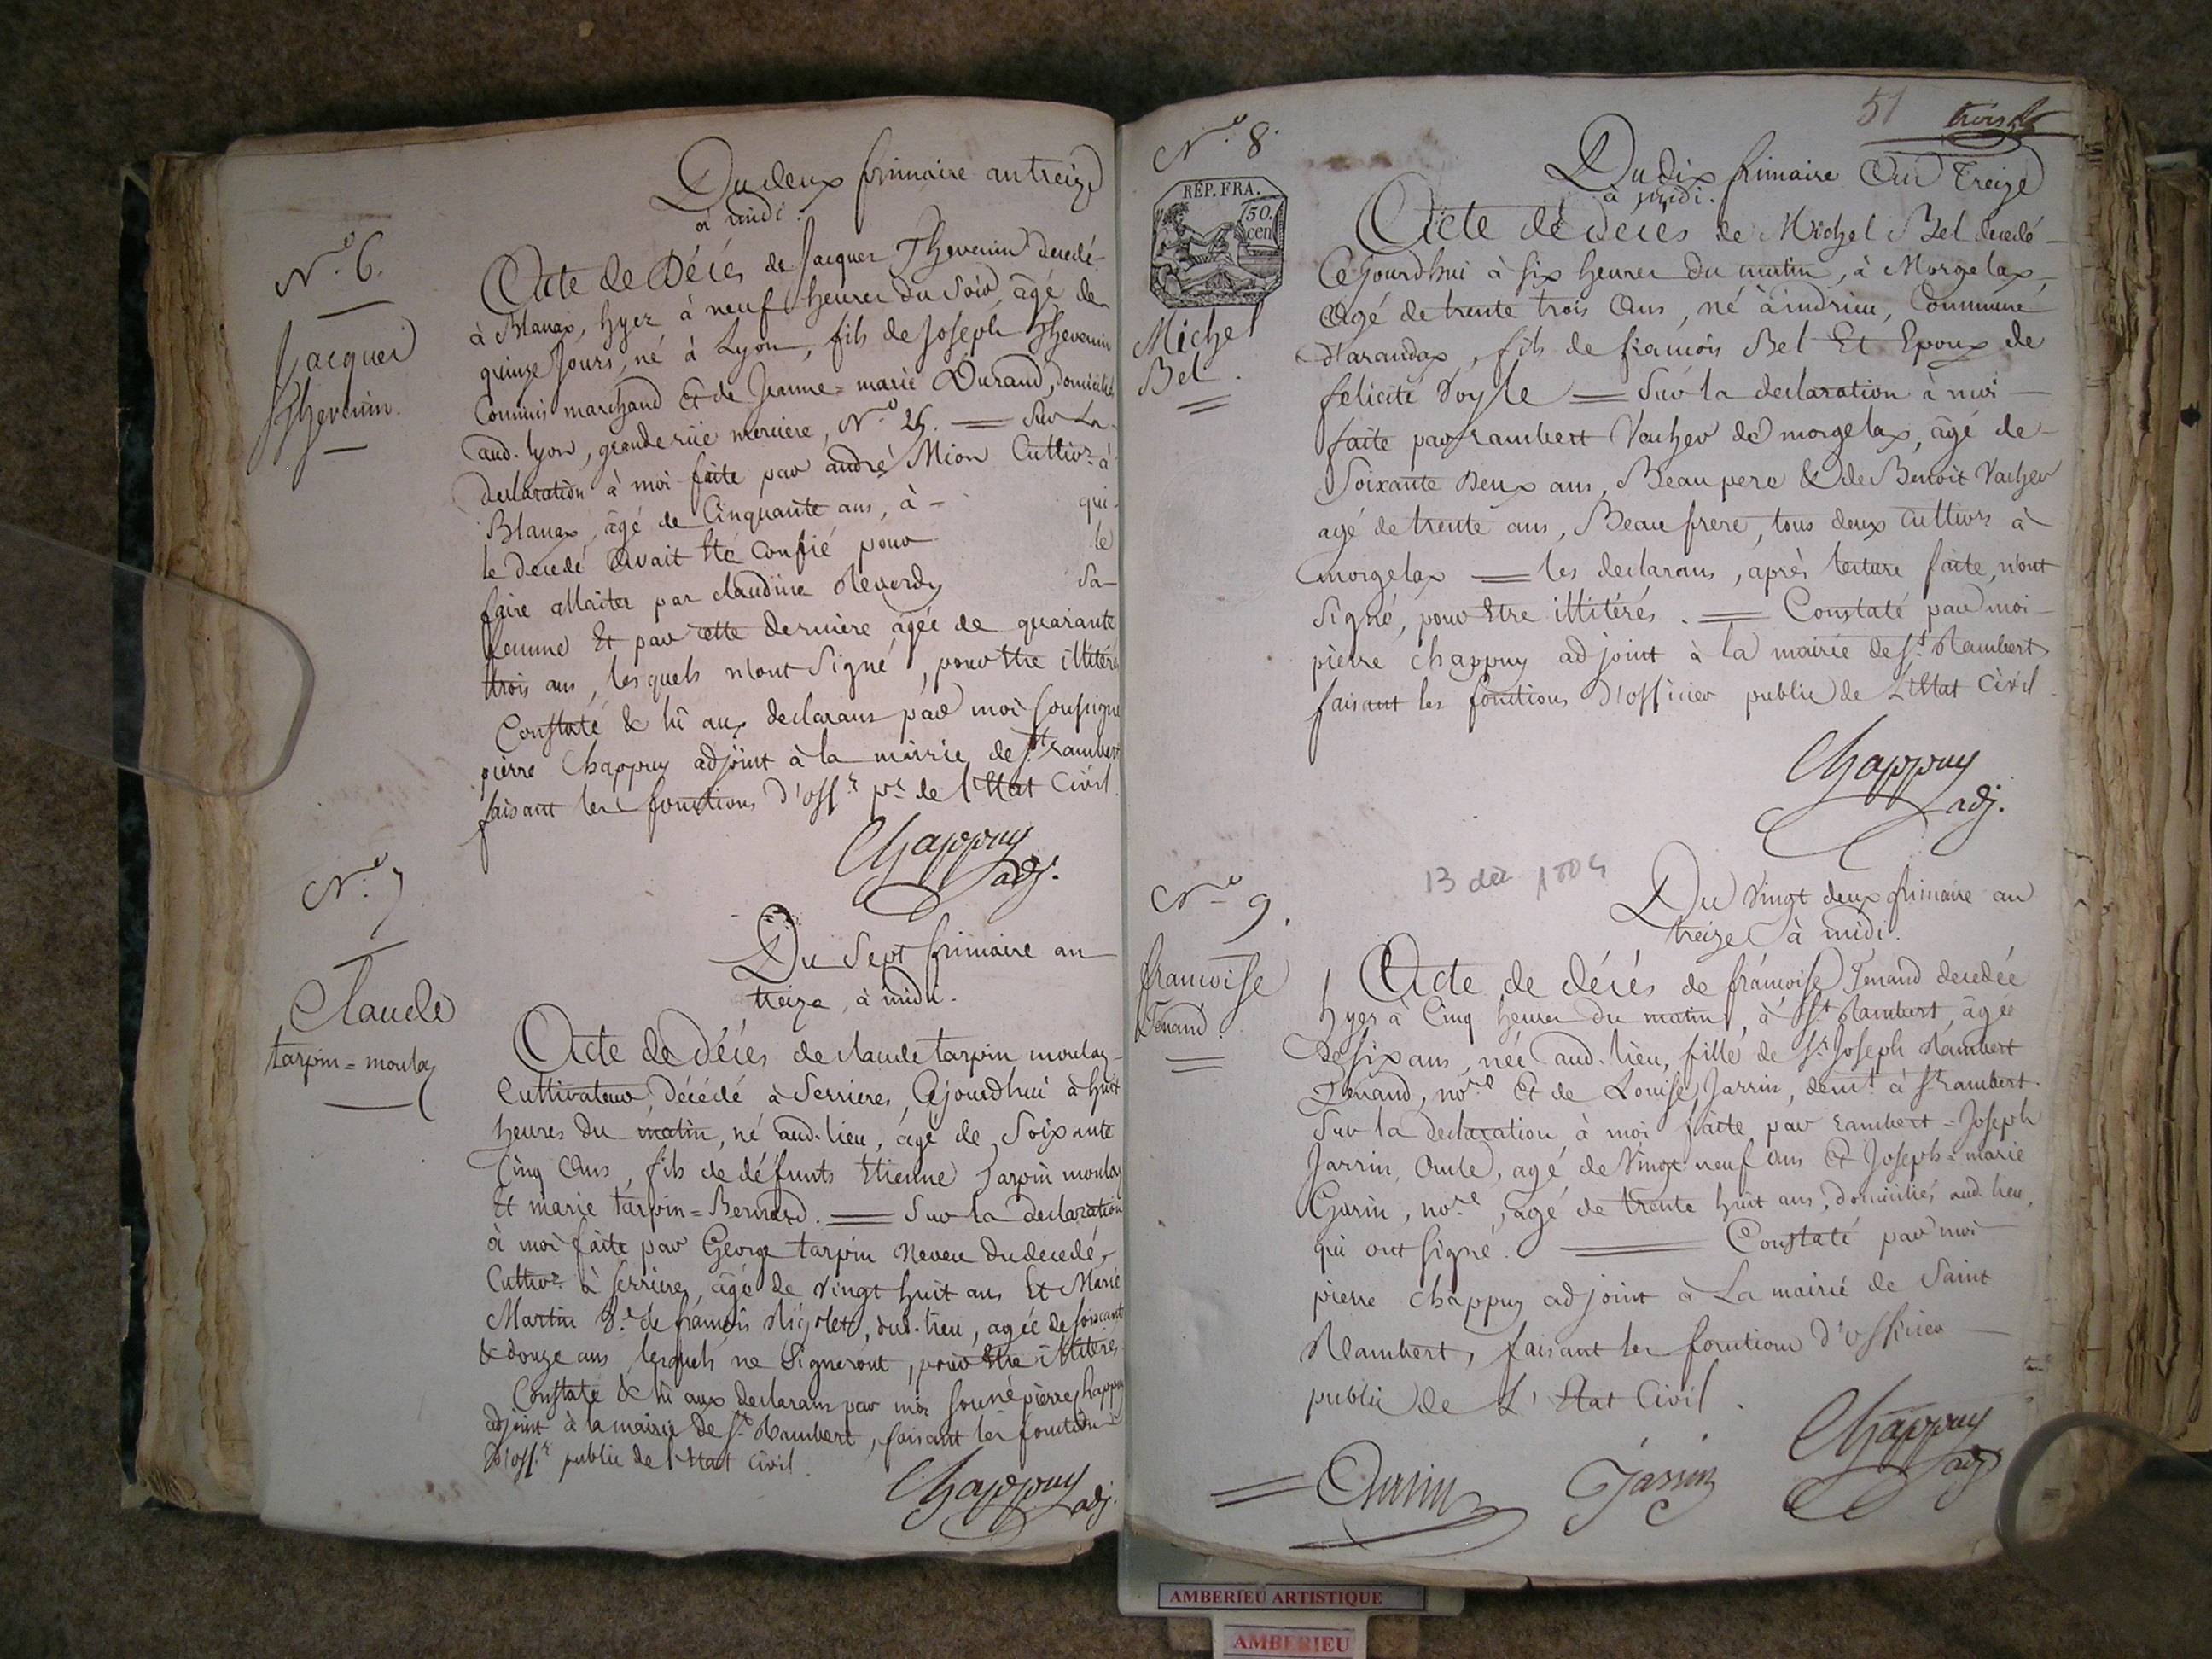 Du deux frimaire an treize
à midi.
N.o 6.
Jacques
Thevenin.
Acte de Décés de Jacques Thevenin decedé
à Blanaz, hyer à neuf heures du Soir, âgé de
quinze Jours, né à Lyon, fils de Joseph Thevenin
Commis marchand et de Jeanne=marie Durand, domiciliés
aud. lyon, grande rüe merciere, N.o 25. = Sur La
declaration à moi faite par andré Mion Cultivr à
Blanaz, âgé de Cinquante ans, à - qui
le decedé Avait Eté Confié pour le
faire allaiter par claudine Reverdy Sa
femme Et par cette derniere âgée de quarante
trois ans, lesquels n'ont Signé, pour être illitérés
Constaté & lû aux declarans par moi soussigné
pierre Chappuy adjoint à la mairie de st. rambert
faisant les fonctions d'offr. pc. de l'Etat Civil.
Chappuy
adj.
N.o 7
Claude
tarpin=moulaz
Du Sept frimaire an
treize, à midi.
Acte de Décés de claude tarpin moulaz
Cultivateur, Décédé à Serrieres, Cejourdhui à huit
heures du matin, né aud. lieu, âgé de Soixante
Cinq Ans, fils de défunts Etienne tarpin moulaz
Et marie tarpin=Bernard. = Sur la declaration
à moi faite par George tarpin Neveu du decedé,
Cultivr. à Serrieres, âgé de vingt huit ans Et Marie
Martin Ve. de françois Rigolet, dud. lieu, agée de soixante
& douze ans lesquels ne Signeront, pour Etre illiteres
Constaté & lû aux declarans par moi sousné pierre chappuy
adjoint à la mairie De St. Rambert, faisant les fonctions
D'offr. public de l'Etat Civil.
Chappuy
adj.
51
N.o 8.
RÉP. FRA.
50.
cen
Michel
Bel.
Du dix frimaire An Treize
à midi.
Acte dé deces de Michel Bel decedé
Cejourdhui à six heures du matin, à Morgelaz,
Agé de trente trois Ans, né à indrieu, Commune
d'arandaz, fils de francois Bel Et Epoux de
felicité Voyle = Sur la declaration à moi
faite par rambert Vacher de morgelaz, âgé de
Soixante Deux ans, Beau pere & de Benoit Vacher
agé de trente ans, Beau frere, tous deux cultivrs à
morgelaz = les declarans, après lecture faite, n'ont
Signé, pour Etre illitérés. = Constaté par moi
pierre chappuy adjoint à la mairie de St. Rambert
faisant les fonctions d'officier public de L'Etat Civil
Chappuy
adj.
13 dec 1804
N.o 9.
francoise
Tenand.
Du Vingt deux frimaire an
treize à midi.
Acte de décés de francoise Tenand decedée
hyer à Cinq heures du matin, à St Rambert, âgée
De six ans, née aud. lieu, fille de Sr. Joseph Rambert
Tenand, nore. Et de Louise Jarrin, demt. à st rambert.
Sur la declaration à moi faite par rambert=Joseph
Jarrin, Oncle, agé de Vingt neuf ans Et Joseph=marie
Garin, nore., âgé de trente huit ans, domiciliés aud. lieu,
qui ont signé. = Constaté par moi
pierre chappuy adjoint à La mairie de Saint
Rambert, faisant les fonctions d'officier
public de L'Etat Civil.
Garin Jarrin Chappuy
adj
AMBERIEU ARTISTIQUE
AMBERIEU